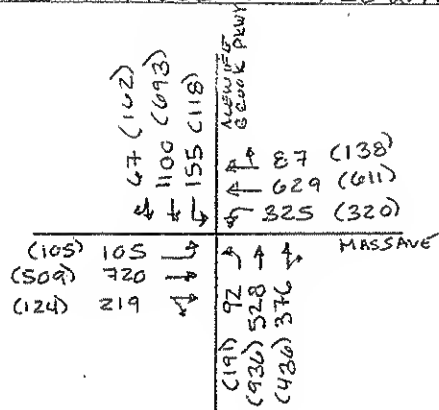 67 (162)
1100 (693)
155 (118)
ALEWIFE
BROOK PKWY
87 (138)
629 (611)
325 (320)
MASSAVE
(105) 105
(509) 720
(124) 219
(191) 92
(936) 528
(436) 376